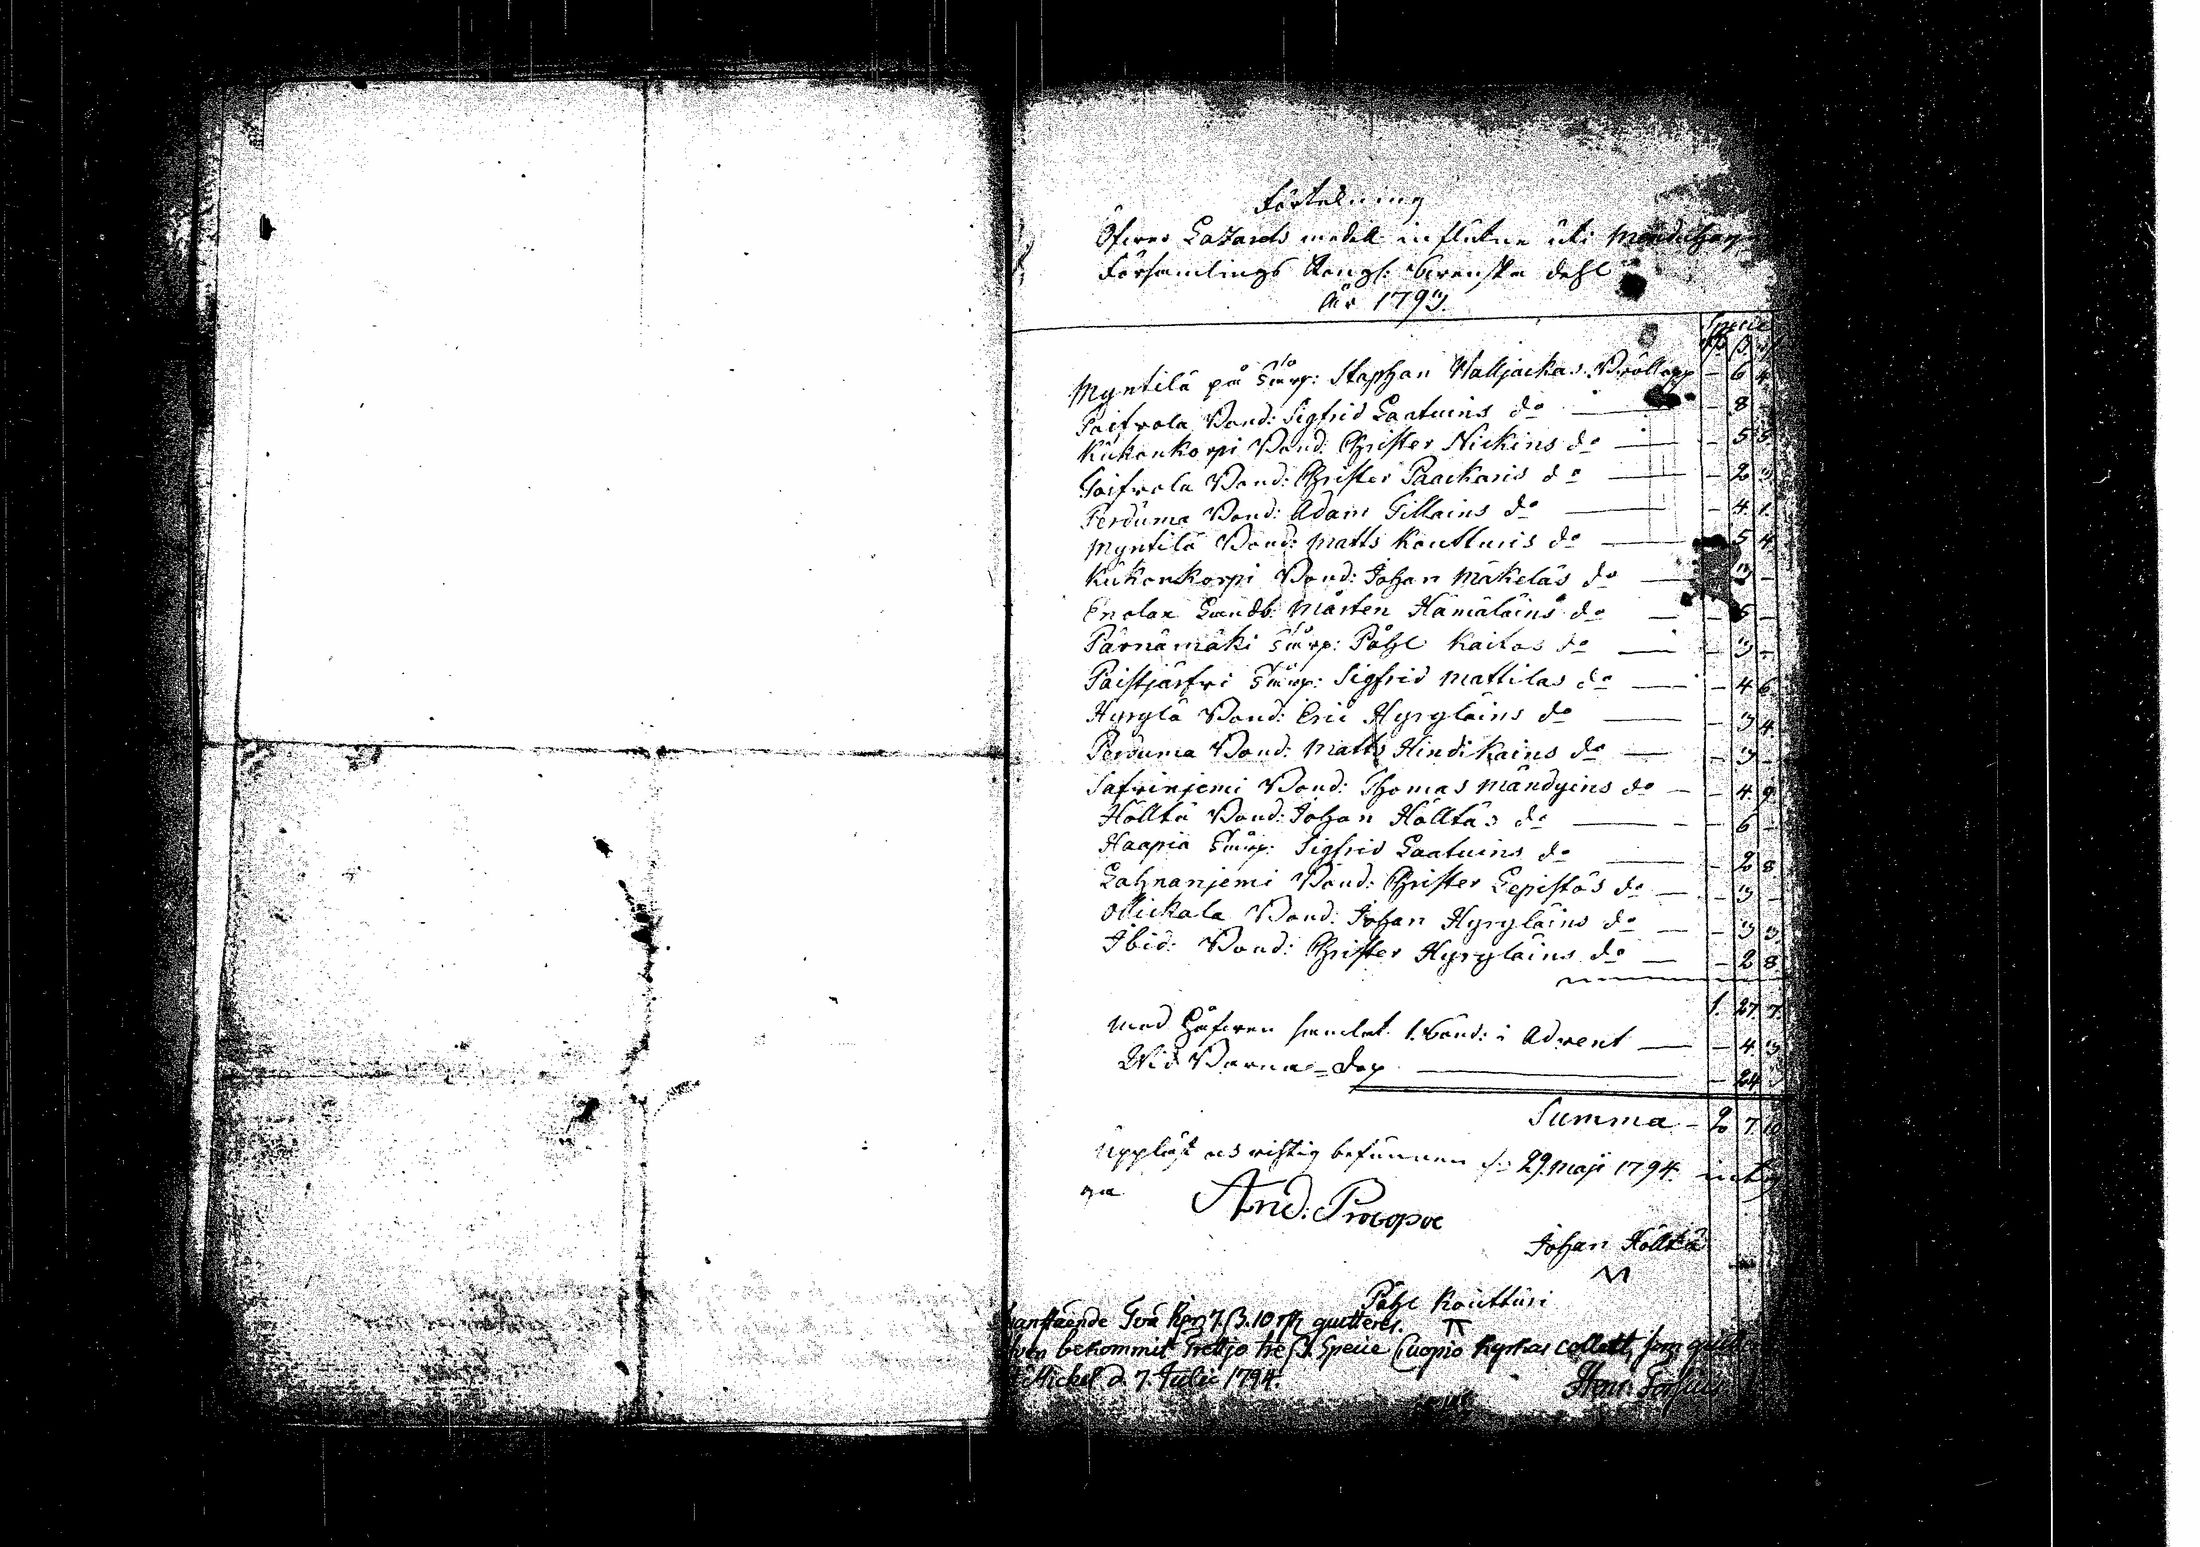 Förtekning
Öfwer Lazarets medell influtne uti Mändüharju
Församlings Kongl: Svenska dehl
År 1793.
Specie
Rd ß rst
Myntilä på Torp: Staphan Walljackas Bröllopp – 6 4.
Paifwola Bond: Sigfrid Laatuins do – 8 –
Kükonkorpi Bond: Christer Nickins do – 5 5.
Toifwola Bond: Christer Paackaris do – 2 3
Pertuma Bond: Adam Pillains do – 4. 1.
Myntilä Bond: Matts Koutturis do – 5 4.
Kükonkorpi Bond: Johan Mäkeläs do – 3 –
Enolax Landb: Mårten Hämäläins do – 5 –
Pärnämäki Torp: Påhl Kaitas do – 3 –
Paistjärfwi Torp: Sigfrid Mattilas do – 4 6.
Hyrylä Bond: Eric Hyryläins do – 3 4.
Pertuma Bond: Matts Hindikains do – 3 –
Safwinjemi Bond: Thomas Mändyins do – 4. 9.
Hölltä Bond: Johan Hölltäs do – 6 –
Haapia Torp: Sigfrid Laatuins do – 2 8.
Lahnanjemi Bond: Christer Lepistös do – 3 –
Ollickala Bond: Johan Hyryläins do – 3 3.
Ibid: Bond: Christer Hyryläins do – 2 8.
1. 27. 7.
Med Håfwen samlat 1. Sönd: i Advent – 4 3.
Wid Barna-dop – 24
Summa – 2 7. 10
Uppläst och richtig befunnen d: 29. Maji 1794. inty
ga
And: Procopoe
Johan Hölltä
Påhl Kouttüri
anstående Två Rdr 7. ß. 10 rst quitteres.
bekommit Trettjo tre ß. Specie Cuopio Kyrkas collect, som quitt
Michel d. 7. Julii 1794.
Henr: